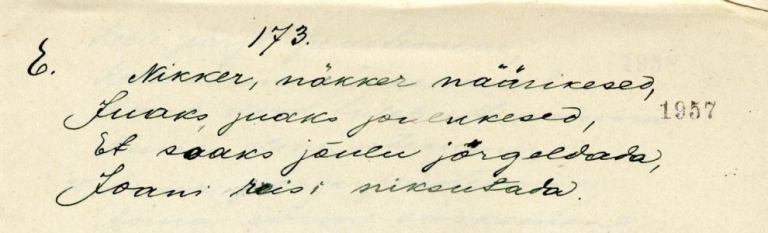 173.
E.
Nikker, näkker näärikesed,
Juaks, juaks joulukesed,
Et saaks jõulu jõrgeldada,
Joani reisi niksutada.
1957